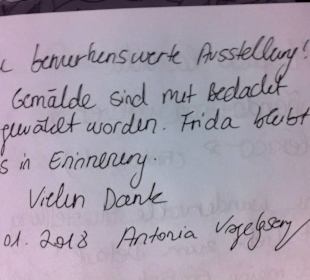 bemerkenswerte Ausstellung!
Gemälde sind mit Bedacht
gewählt worden. Frida bleibt
s in Erinnerung.
Vielen Dank
01. 2018 Antonia